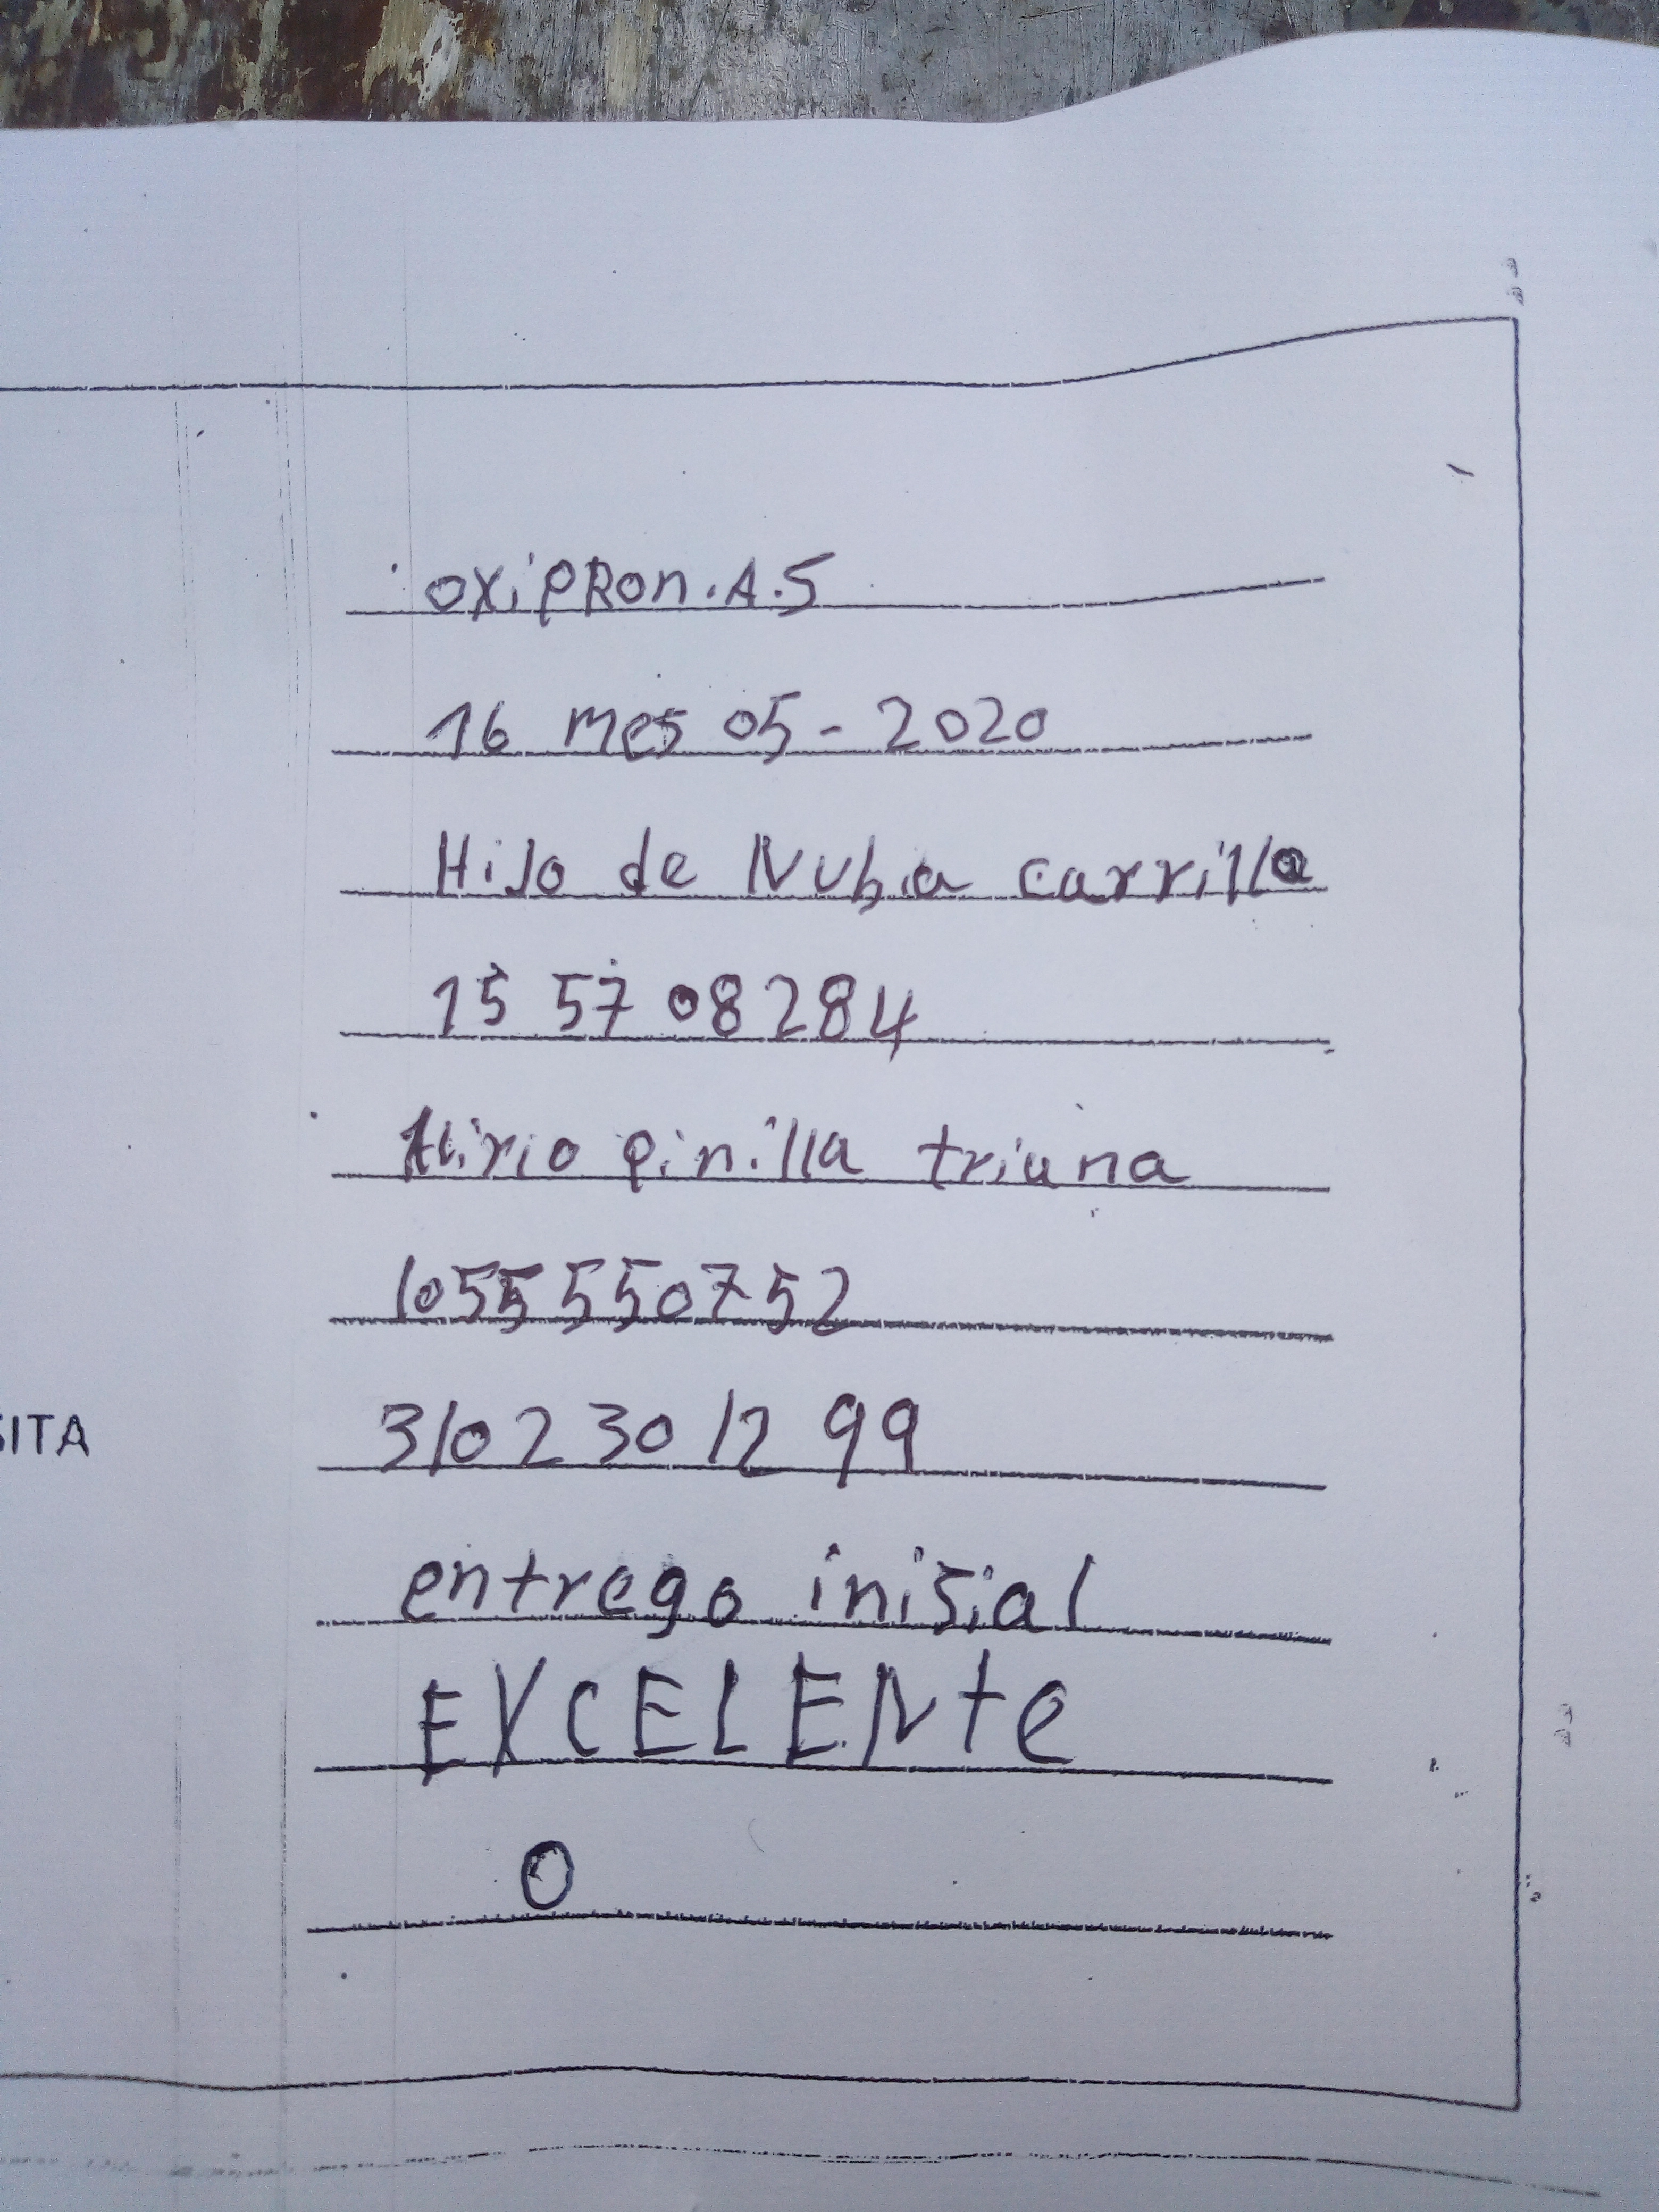 oxipRon.A.S
16 mes 05-2020
Hijo de Nubia carrilla
15 57 08284
Alirio pinilla triana
1055550752
SITA 310 2 30 12 99
entrego inisial
EXCELENte
0